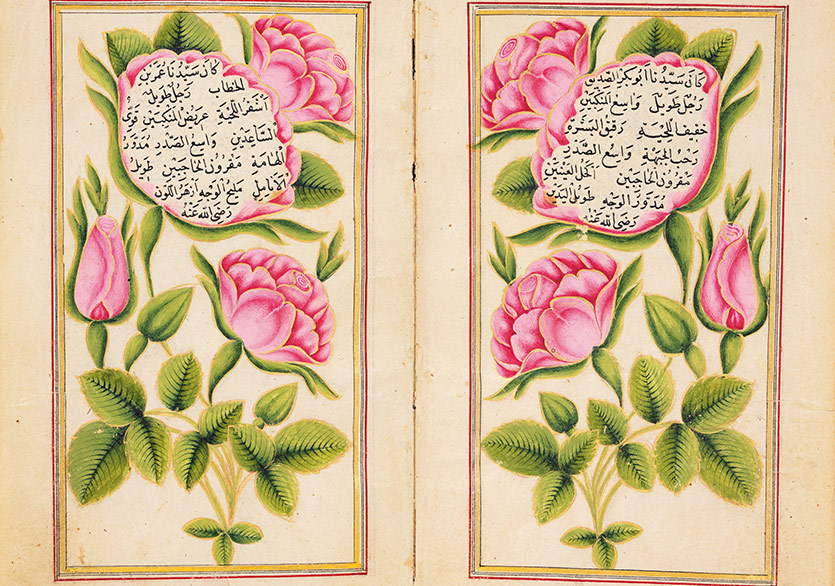 كان سيدنا ابو بكر الصديق
رجل طويل واسع المنكبين
خفيف اللحية رقيق البشره
رحب الجبهة واسع الصدر
مقرون الحاجبين اكحل العينين
مدور الوجه طويل اليدين
رضى الله عنه
كان سيدنا عمر بن
الخطاب رجل طويل
اشقر اللحية عريض المنكبين قوى
الساعدين واسع الصدر مدور
الهامة مقرون الحاجبين طويل
الانامل مليح الوجه ازهر اللون
رضى الله عنه